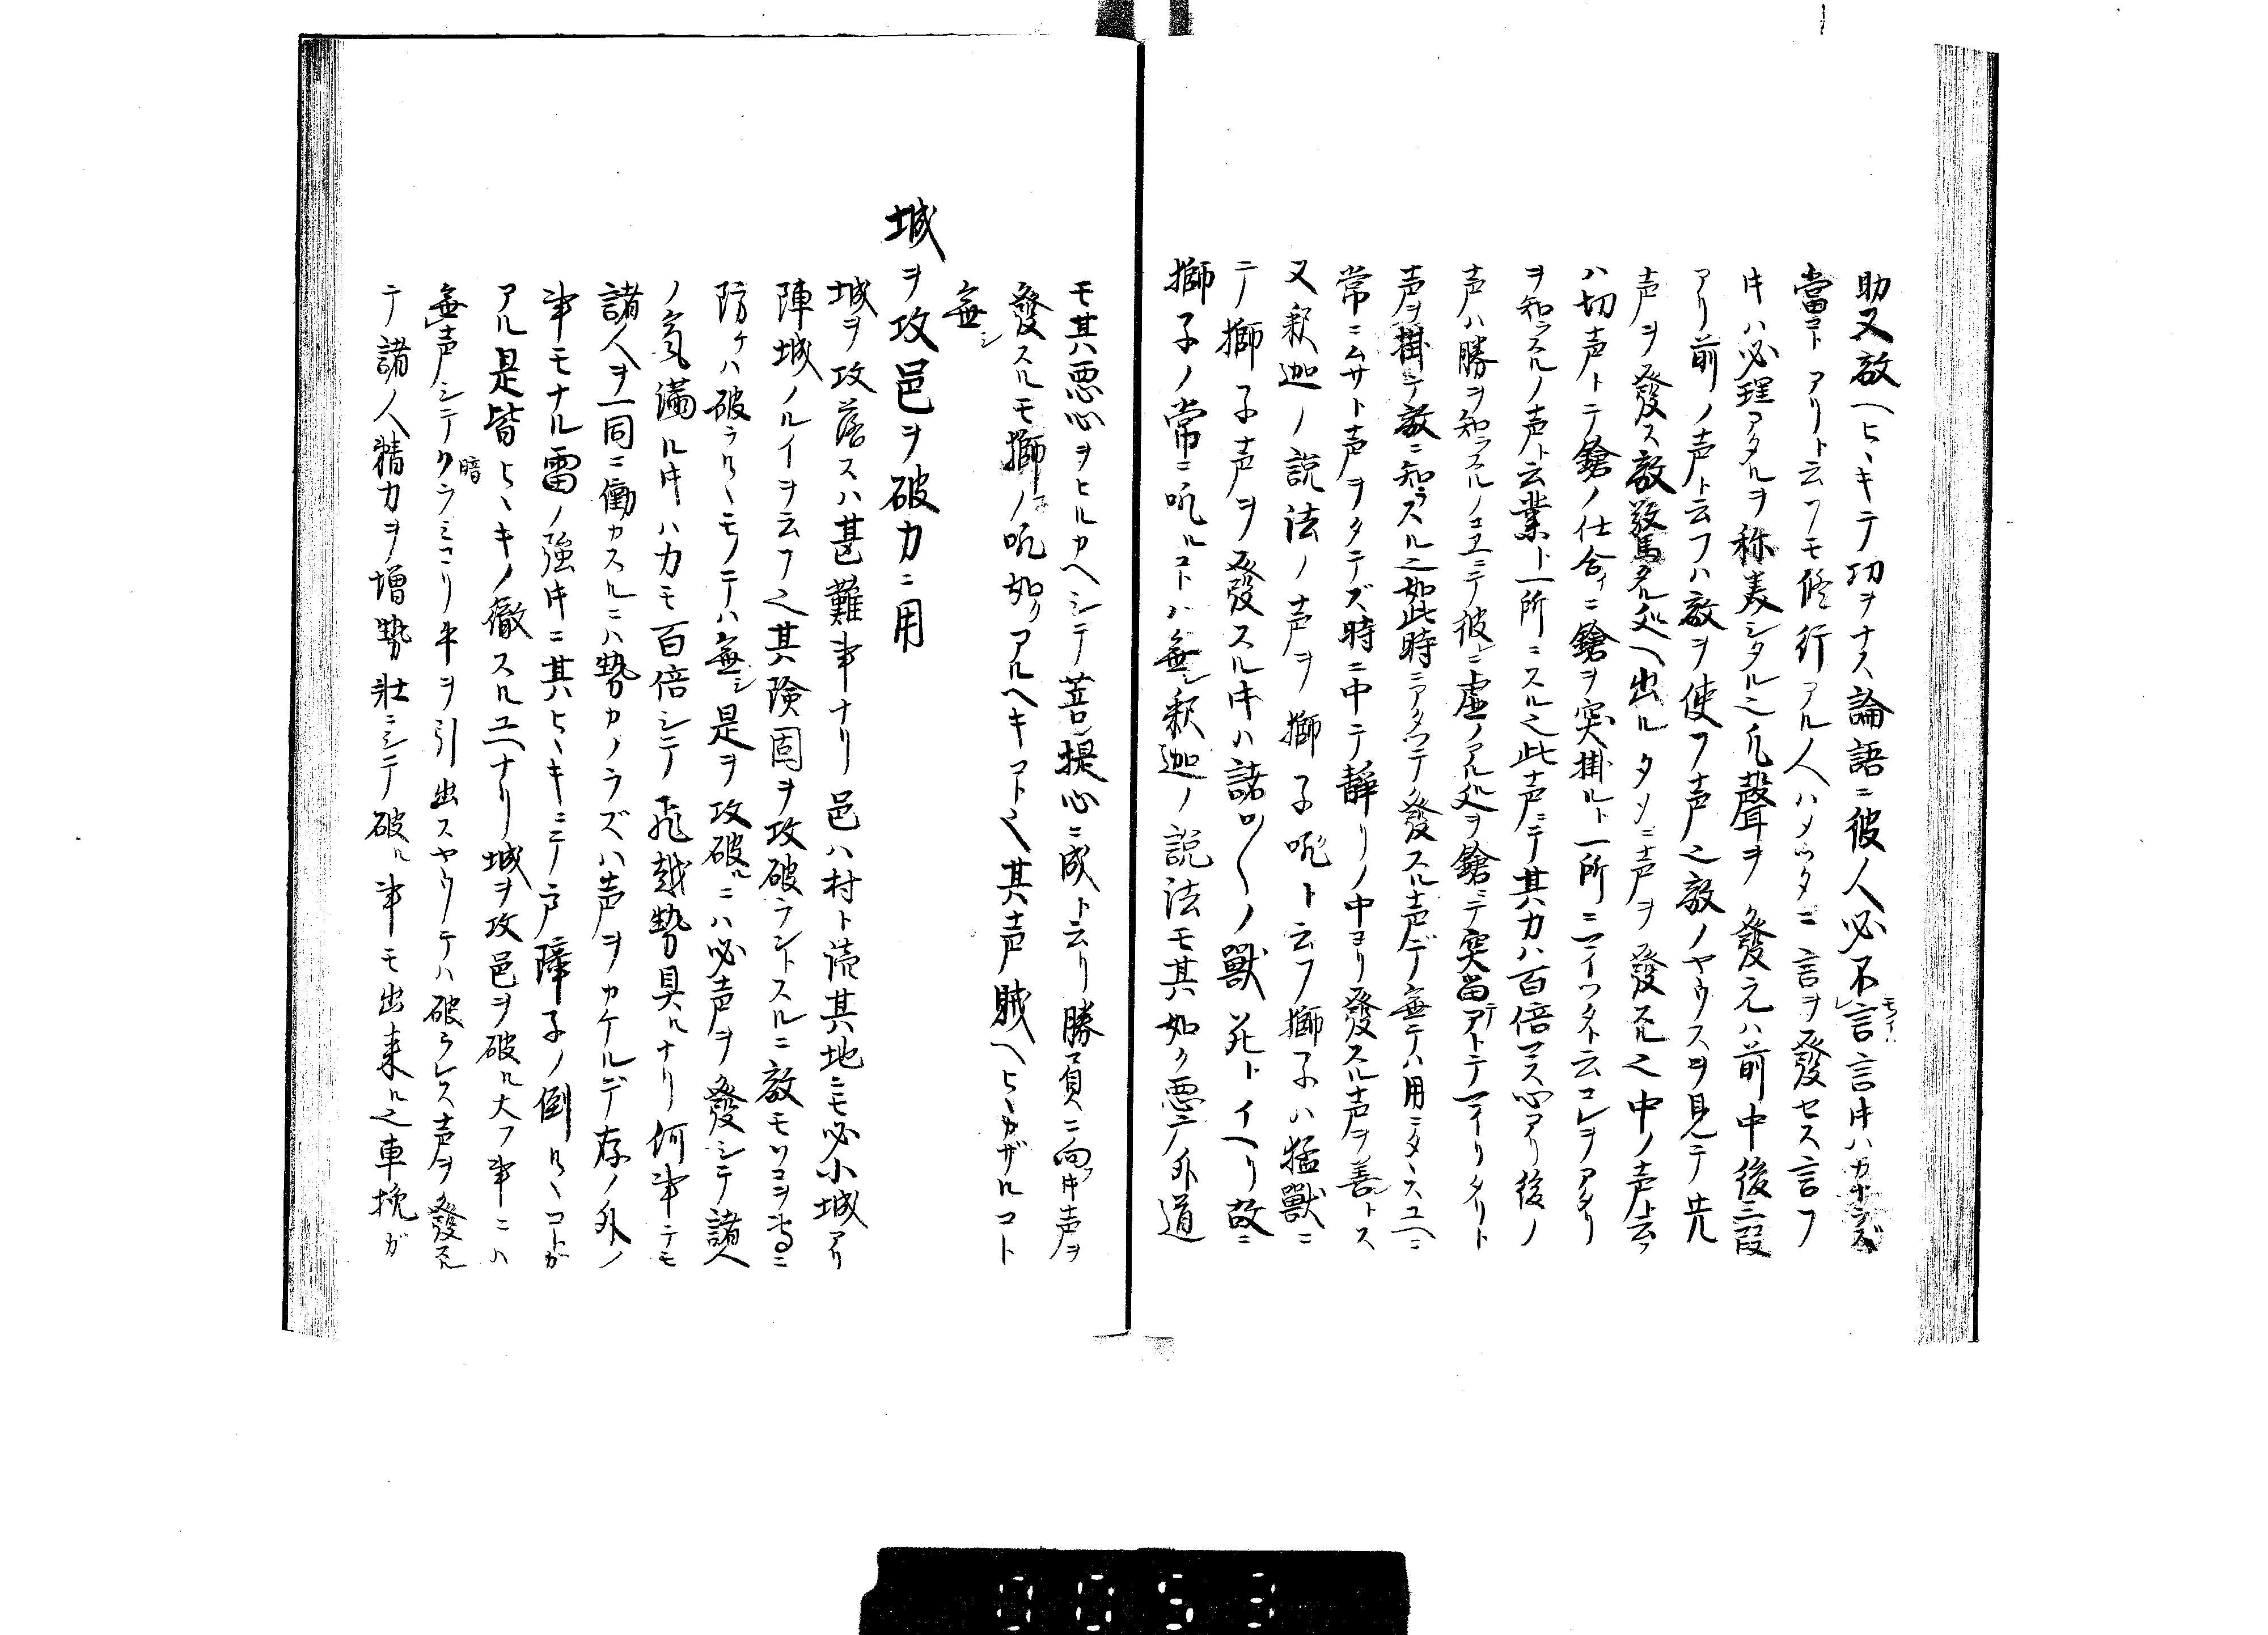 助又敵ヘヒヽキテ功ヲナス論語ニ彼人必不言言トキハカナラズ
當コトアリト云フモ修行アル人ハメツタニ言ヲ發セス言フ
トキハ必理アタルヲ称美シタル也凡聲ヲ發元ハ前中後三段
アリ前ノ声ト云フハ敵ヲ使フ声也敵ノヤウスヲ見テ先
声ヲ發ス敵驚タル処ヘ出ルタメニ声ヲ發スル也中ノ声ト云フ
ハ切声トテ鎗ノ仕合イニ鎗ヲ突掛ルト一所ニマイツタト云コレヲアタリ
ヲ知ラスルノ声ト云業ト一所ニスル也此声ニテ其力ハ百倍マス心アリ後ノ
声ハ勝ヲ知ラスルノユヱニテ彼ニ虚ノアル処ヲ鎗ニテ突當アトテマイリタリト
声ヲ掛テ敵ニ知ラスル也如此時ニアタツテノ發スル声デノ無テハ用ニタヽスユヘニ
常ニムサト声ヲタテズ時ニ中テ静リノ中ヨリ發スル声ヲ善トス
又釈迦ノ説法ノ声ヲ獅子吼ト云フ獅子ハ猛獸ニ
テ獅子声ヲ發スルトキハ諸〱ノ獸死トイヘリ故ニ
獅子ノ常ニ吼ルコトハ無シ釈迦ノ説法モ其如ク悪テ外道
モ其悪心ヲヒルカヘシテ菩提心ニ成ト云リ勝負ニ向フトキ声ヲ
發スルモ獅子ノ吼如クアルヘキコト也其声賊ヘヒヽカザルコト
無シ
城ヲ攻邑ヲ破力ニ用
城ヲ攻落スハ甚難事ナリ邑ハ村ト読其地ニモ必小城アリ
陣城ノルイヲ云フ也其険固ヲ攻破ラントスルニ敵モソコヲ専ニ
防ケハ破ラルヽモノテハ無シ是ヲ攻破ルニハ必声ヲ發シテ諸人
ノ気満ルトキハ力モ百倍シテ飛越勢具ルナリ何事テモ
諸人ヲ一同ニ働カスルニハ勢カノラズハ声ヲカケルデ存ノ外ノ
事モナル雷ノ強トキニ其ヒヽキニテ戸障子ノ倒ルヽコトガ
アル是皆ヒヽキノ徹スルユヘナリ城ヲ攻邑ヲ破ル大フ事ニハ
無声シテクラミヨリ牛ヲ引出スヤウテハ破ラレス声ヲ發スル
暗
テ諸ノ人精力ヲ増勢壮ニシテ破ル事モ出来ル也車挽ガ